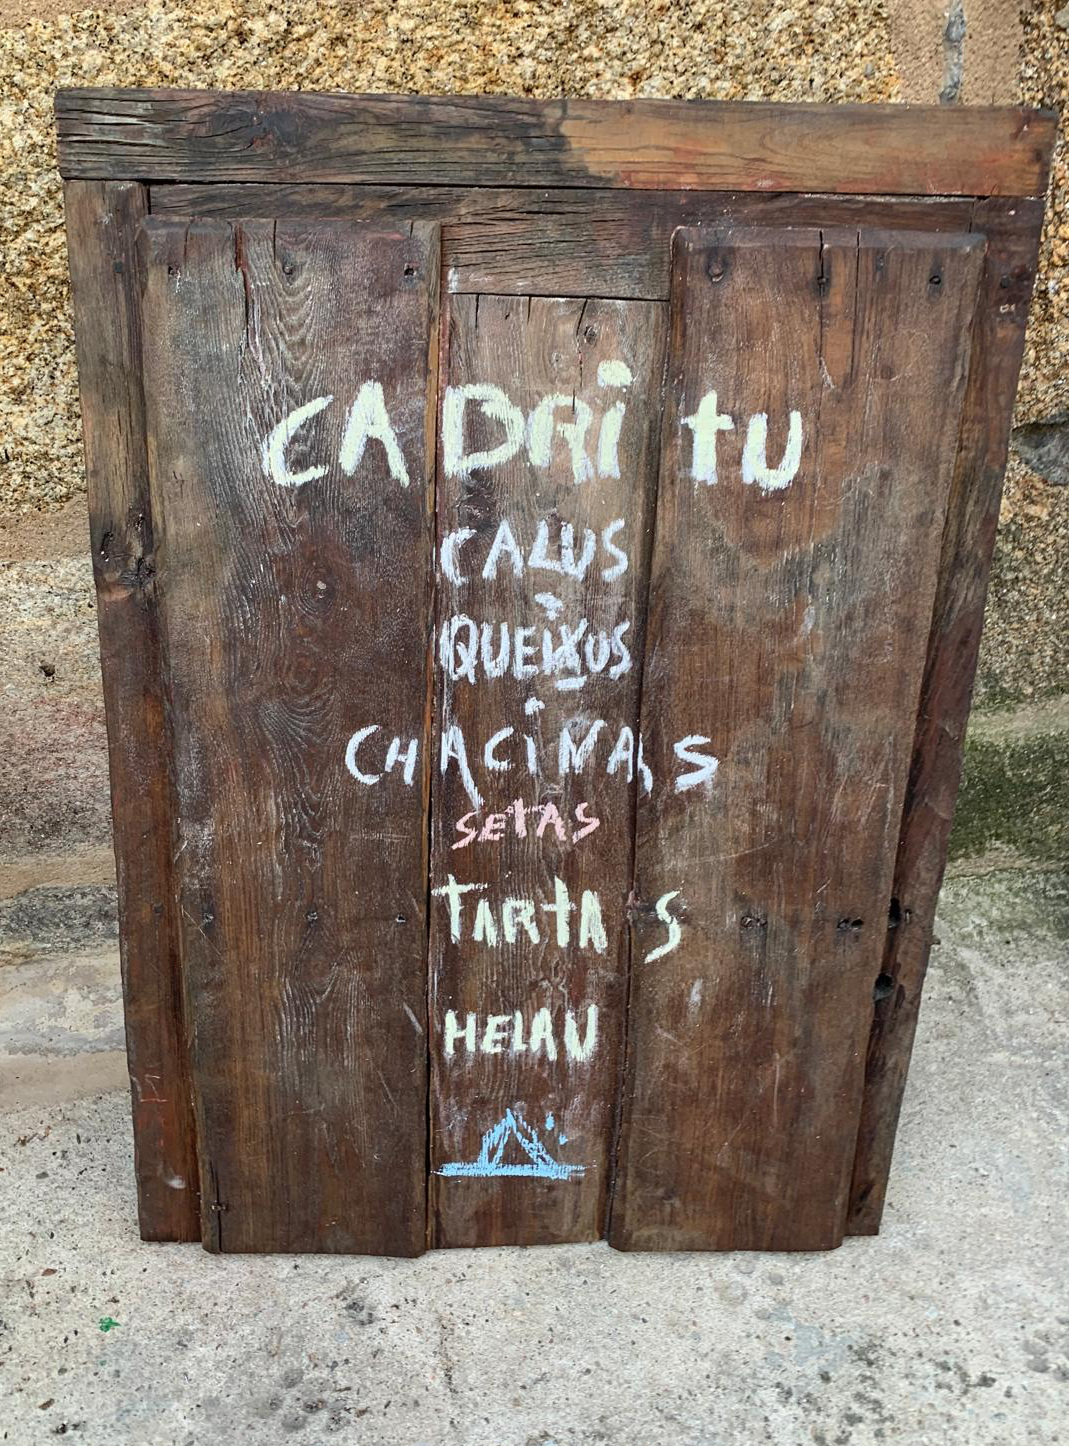 CADRi tU
CALUS
QUEiXUS
CHACiNAS
SETAS
TARTAS
HELAU